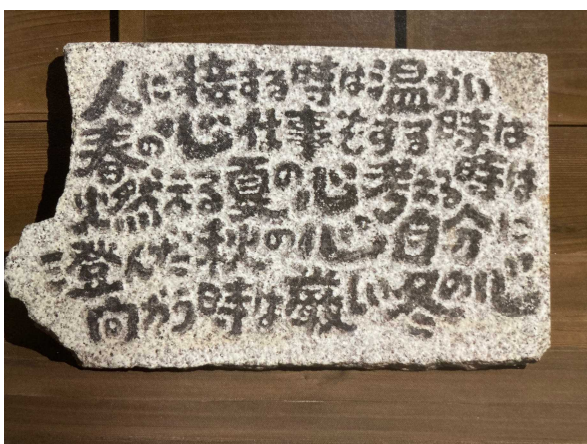 人に接する時は温かい
春の心仕事をする時は
燃える夏の心考える時は
澄んだ秋の心自分に
向かう時は厳しい冬の心